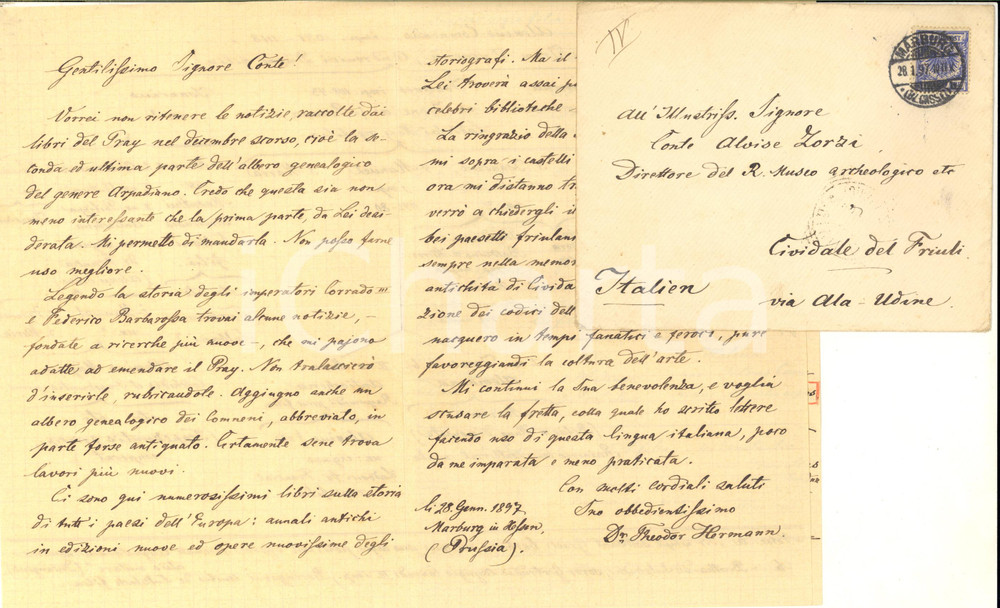 Gentilissimo Signore Conte!
Vorrei non ritenere le notizie, raccolte dai
libri del Pray nel decembre scorso, cioè la se-
conda ed ultima parte dell'albero genealogico
del genere Arpadiano. Credo che questa sia non
meno interessante che la prima parte, da Lei desi-
derata. Mi permetto di mandarla. Non posso farne
uso megliore.
Legendo la storia degli imperatori Corrado III
e Federico Barbarossa trovai alcune notizie, –
fondate a ricerche più nuove –, che mi pajono
adatte ad emendare il Pray. Non tralascierò
d'inserirle, rubricandole. Aggiungo anche un
albero genealogico dei Comneni, abbreviato, in
parte forse antiquato. Certamente sene trova
lavori più nuovi.
Ci sono qui numerosissimi libri sulla storia
di tutti i paesi dell'Europa: annali antichi
in edizioni nuove ed opere nuovissime degli
storiografi. Ma il
Lei troverà assai p
celebri biblioteche
La ringrazio della
mi sopra i castelli
ora mi distanno tr
verrò a chiedergli il
bei paesetti friulani
sempre nella memor
antichità di Civida
zione dei codici dell
nacquero in tempi fanatici e feroci, pure
favoreggiandi la coltura dell'arte.
Mi continui la Sua benevolenza, e voglia
scusare la fretta, colla quale ho scritto lettere
facendo uso di questa lingua italiana, poco
da me imparata e meno praticata.
Con molti cordiali saluti
Suo obbedientissimo
Dr. Theodor Hermann.
li 28. Genn. 1897.
Marburg in Hessen,
(Prussia).
IV
MARBURG
28.1.97
All' Illustriss. Signore
Conte Alvise Zorzi
Direttore del R. Museo archeologico etc
Cividale del Friuli
Italien
via Ala-Udine.
iCharta